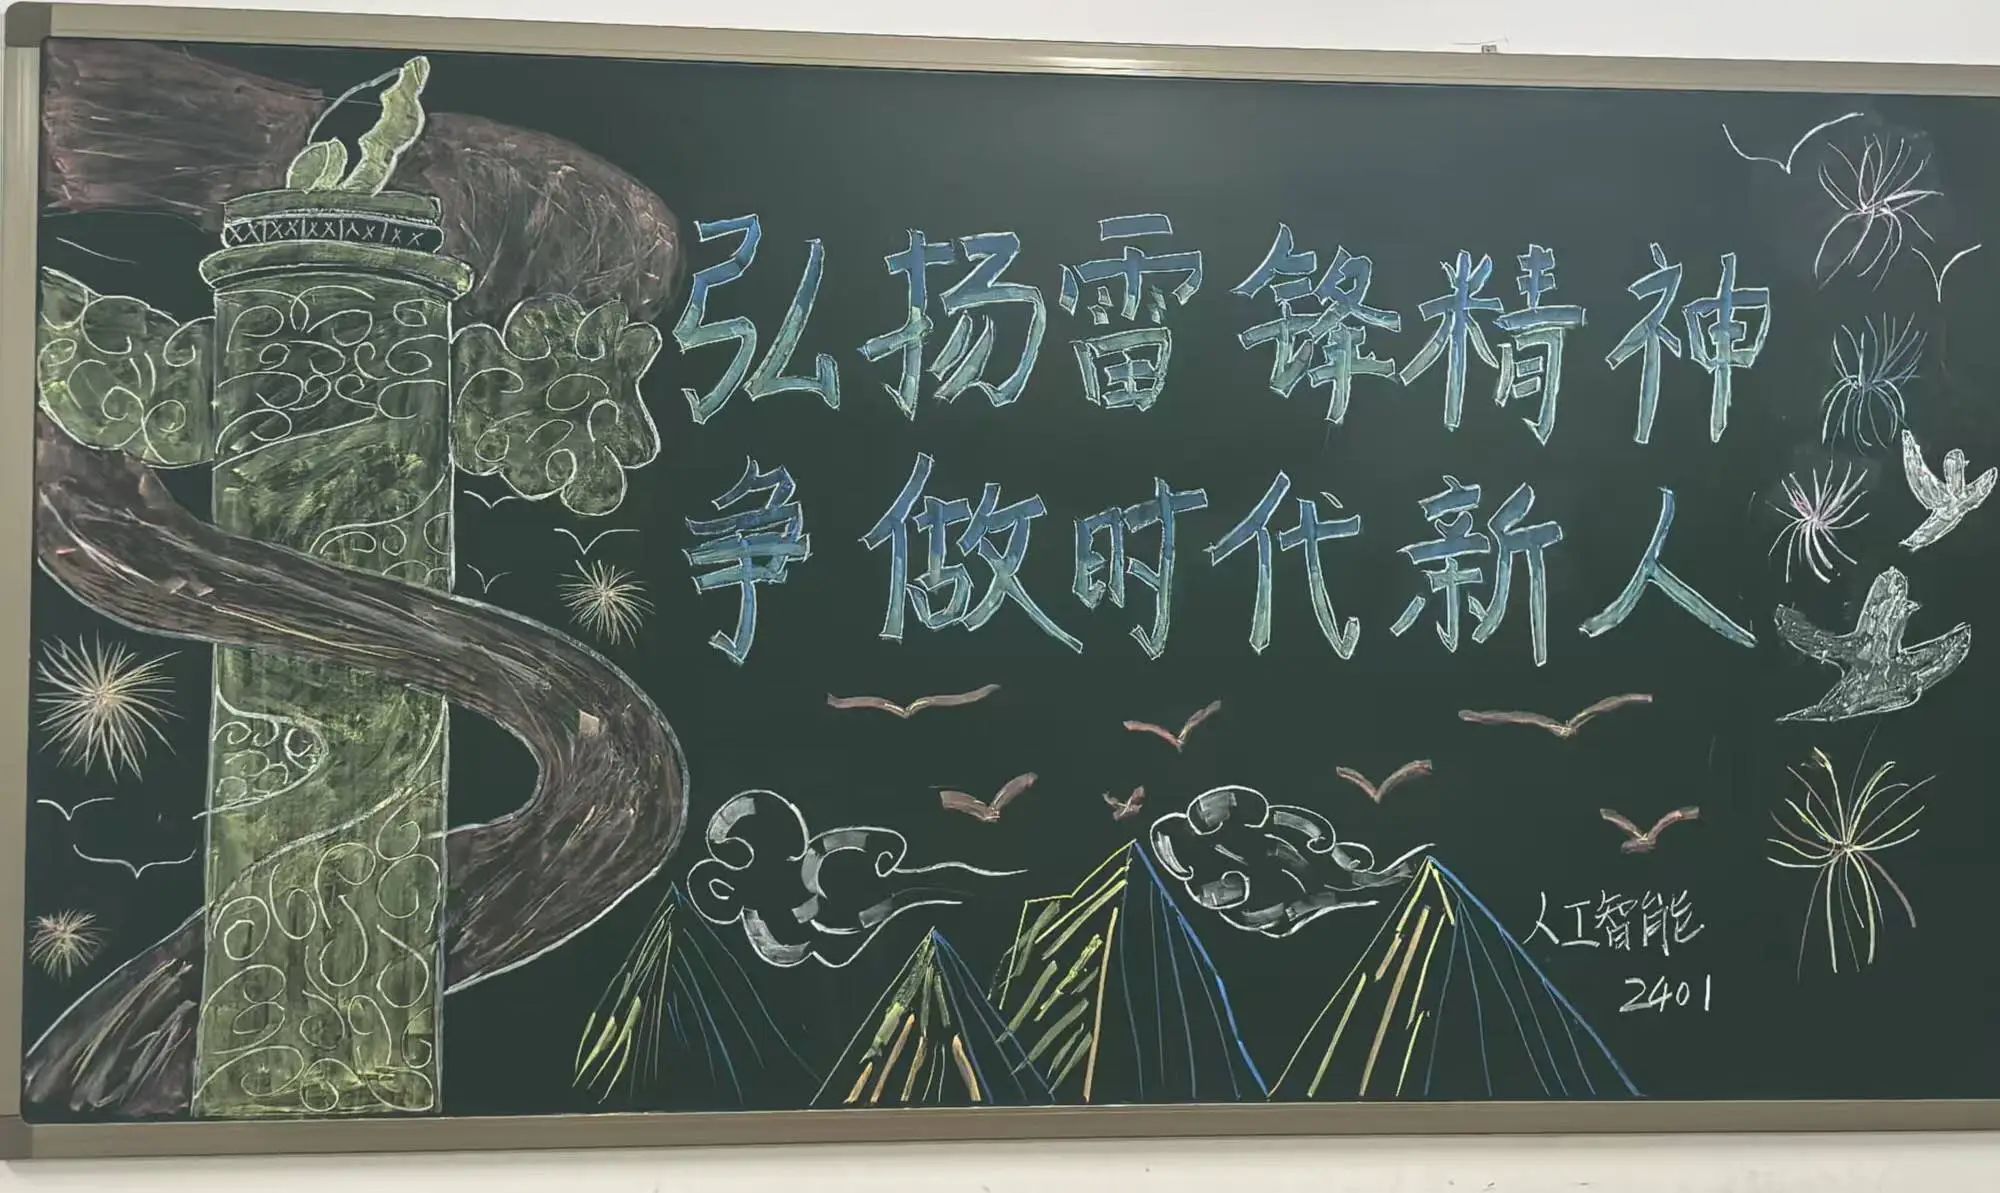 弘扬雷锋精神
争做时代新人
人工智能
2401